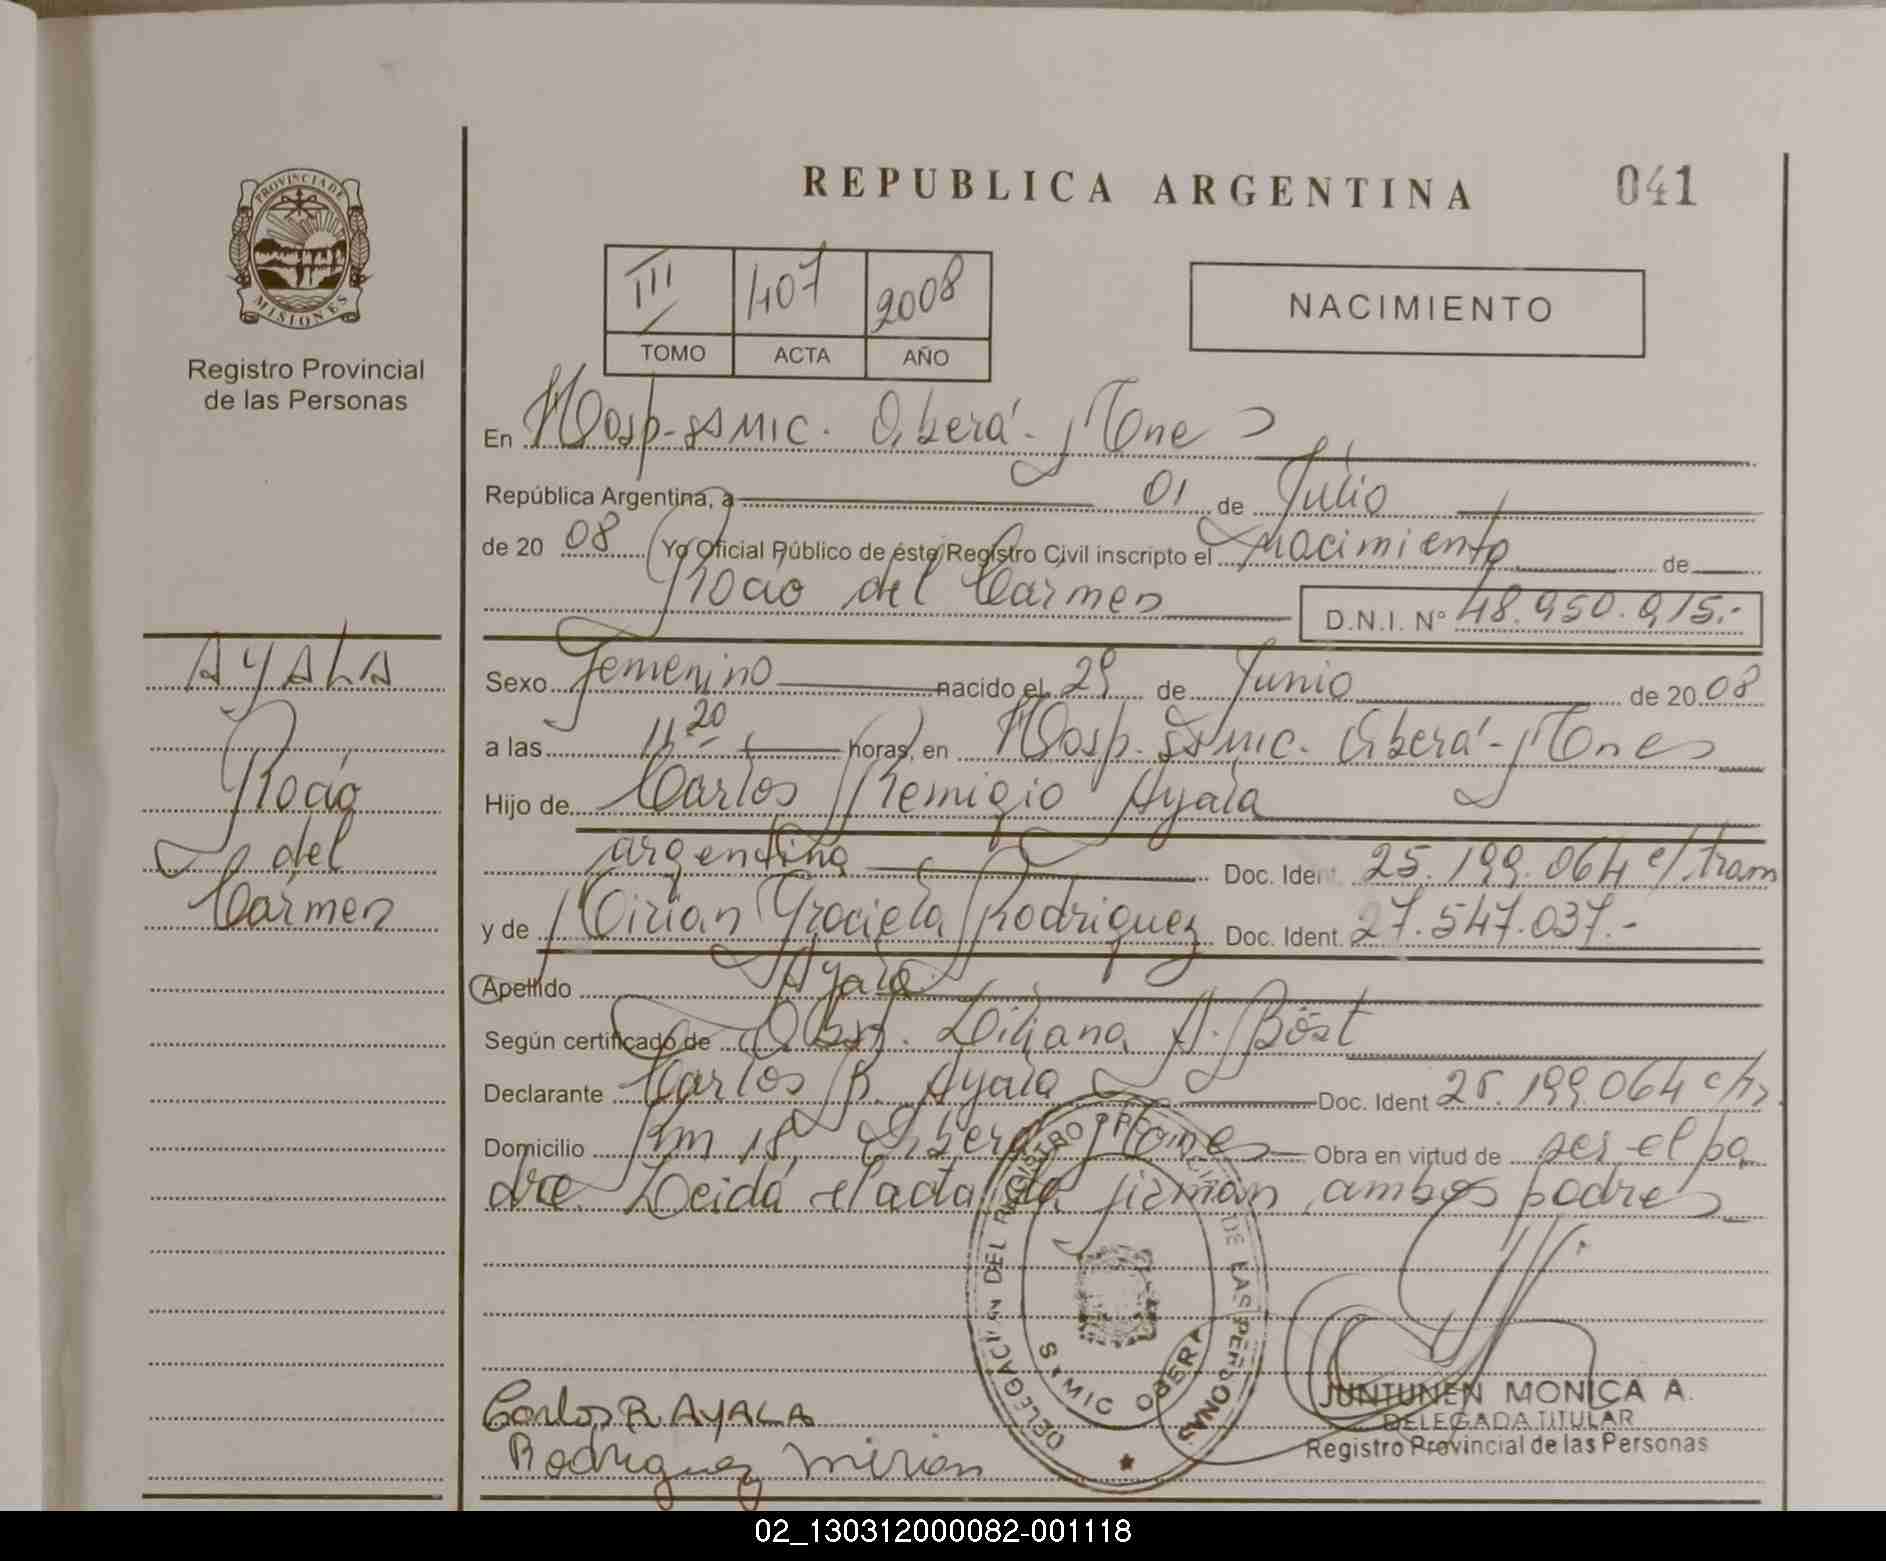 REPUBLICA ARGENTINA
041
PROVINCIA DE MISIONES
Registro Provincial
de las Personas
III 407 2008
TOMO ACTA AÑO
NACIMIENTO
En Hosp. SAMIC. Oberá - Mnes
República Argentina, a 01 de Julio
de 2008 Yo Oficial Público de éste Registro Civil inscripto el nacimiento de
Rocío del Cármen D.N.I. Nº 48.950.915.-
AYALA
Rocío
del
Cármen
Sexo Femenino nacido el 29 de Junio de 2008
a las 11,20 horas, en Hosp. SAMIC. Oberá - Mnes
Hijo de Carlos Remigio Ayala
argentina Doc. Ident. 25.199.064 c/tram
y de Mirian Graciela Rodriguez Doc. Ident. 27.547.037.-
Apellido Ayala
Según certificado de Obst. Liliana A. Böst
Declarante Carlos R. Ayala Doc. Ident 25.199.064 c/tr.
Domicilio Km 18, Oberá Mnes Obra en virtud de ser el pa
dre. Leída el acta la firman ambos padres
DELEGACION DEL REGISTRO PROVINCIAL DE LAS PERSONAS
S.A.MIC OBERA
Carlos R AYALA
Rodriguez Mirian
JUNTUNEN MONICA A.
DELEGADA TITULAR
Registro Provincial de las Personas
02_130312000082-001118